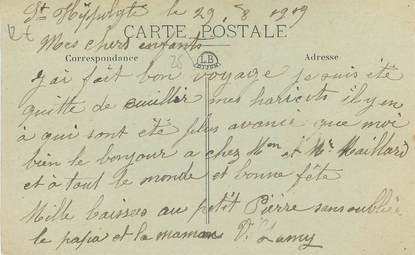 St Hippolyte le 29, 8 1909
CARTE POSTALE
Mes chers enfants
Correspondance
LB
Adresse
J'ai fait bon voyage je suis été
quitte de cuillir mes haricots il y en
à qui sont été plus avance que moi
bien le bonjour a chez Mon et Me Maillard
et à tout le monde et bonne fête
Mille baisses au petit Pierre sans oublié
le papa et la maman V. Lamy